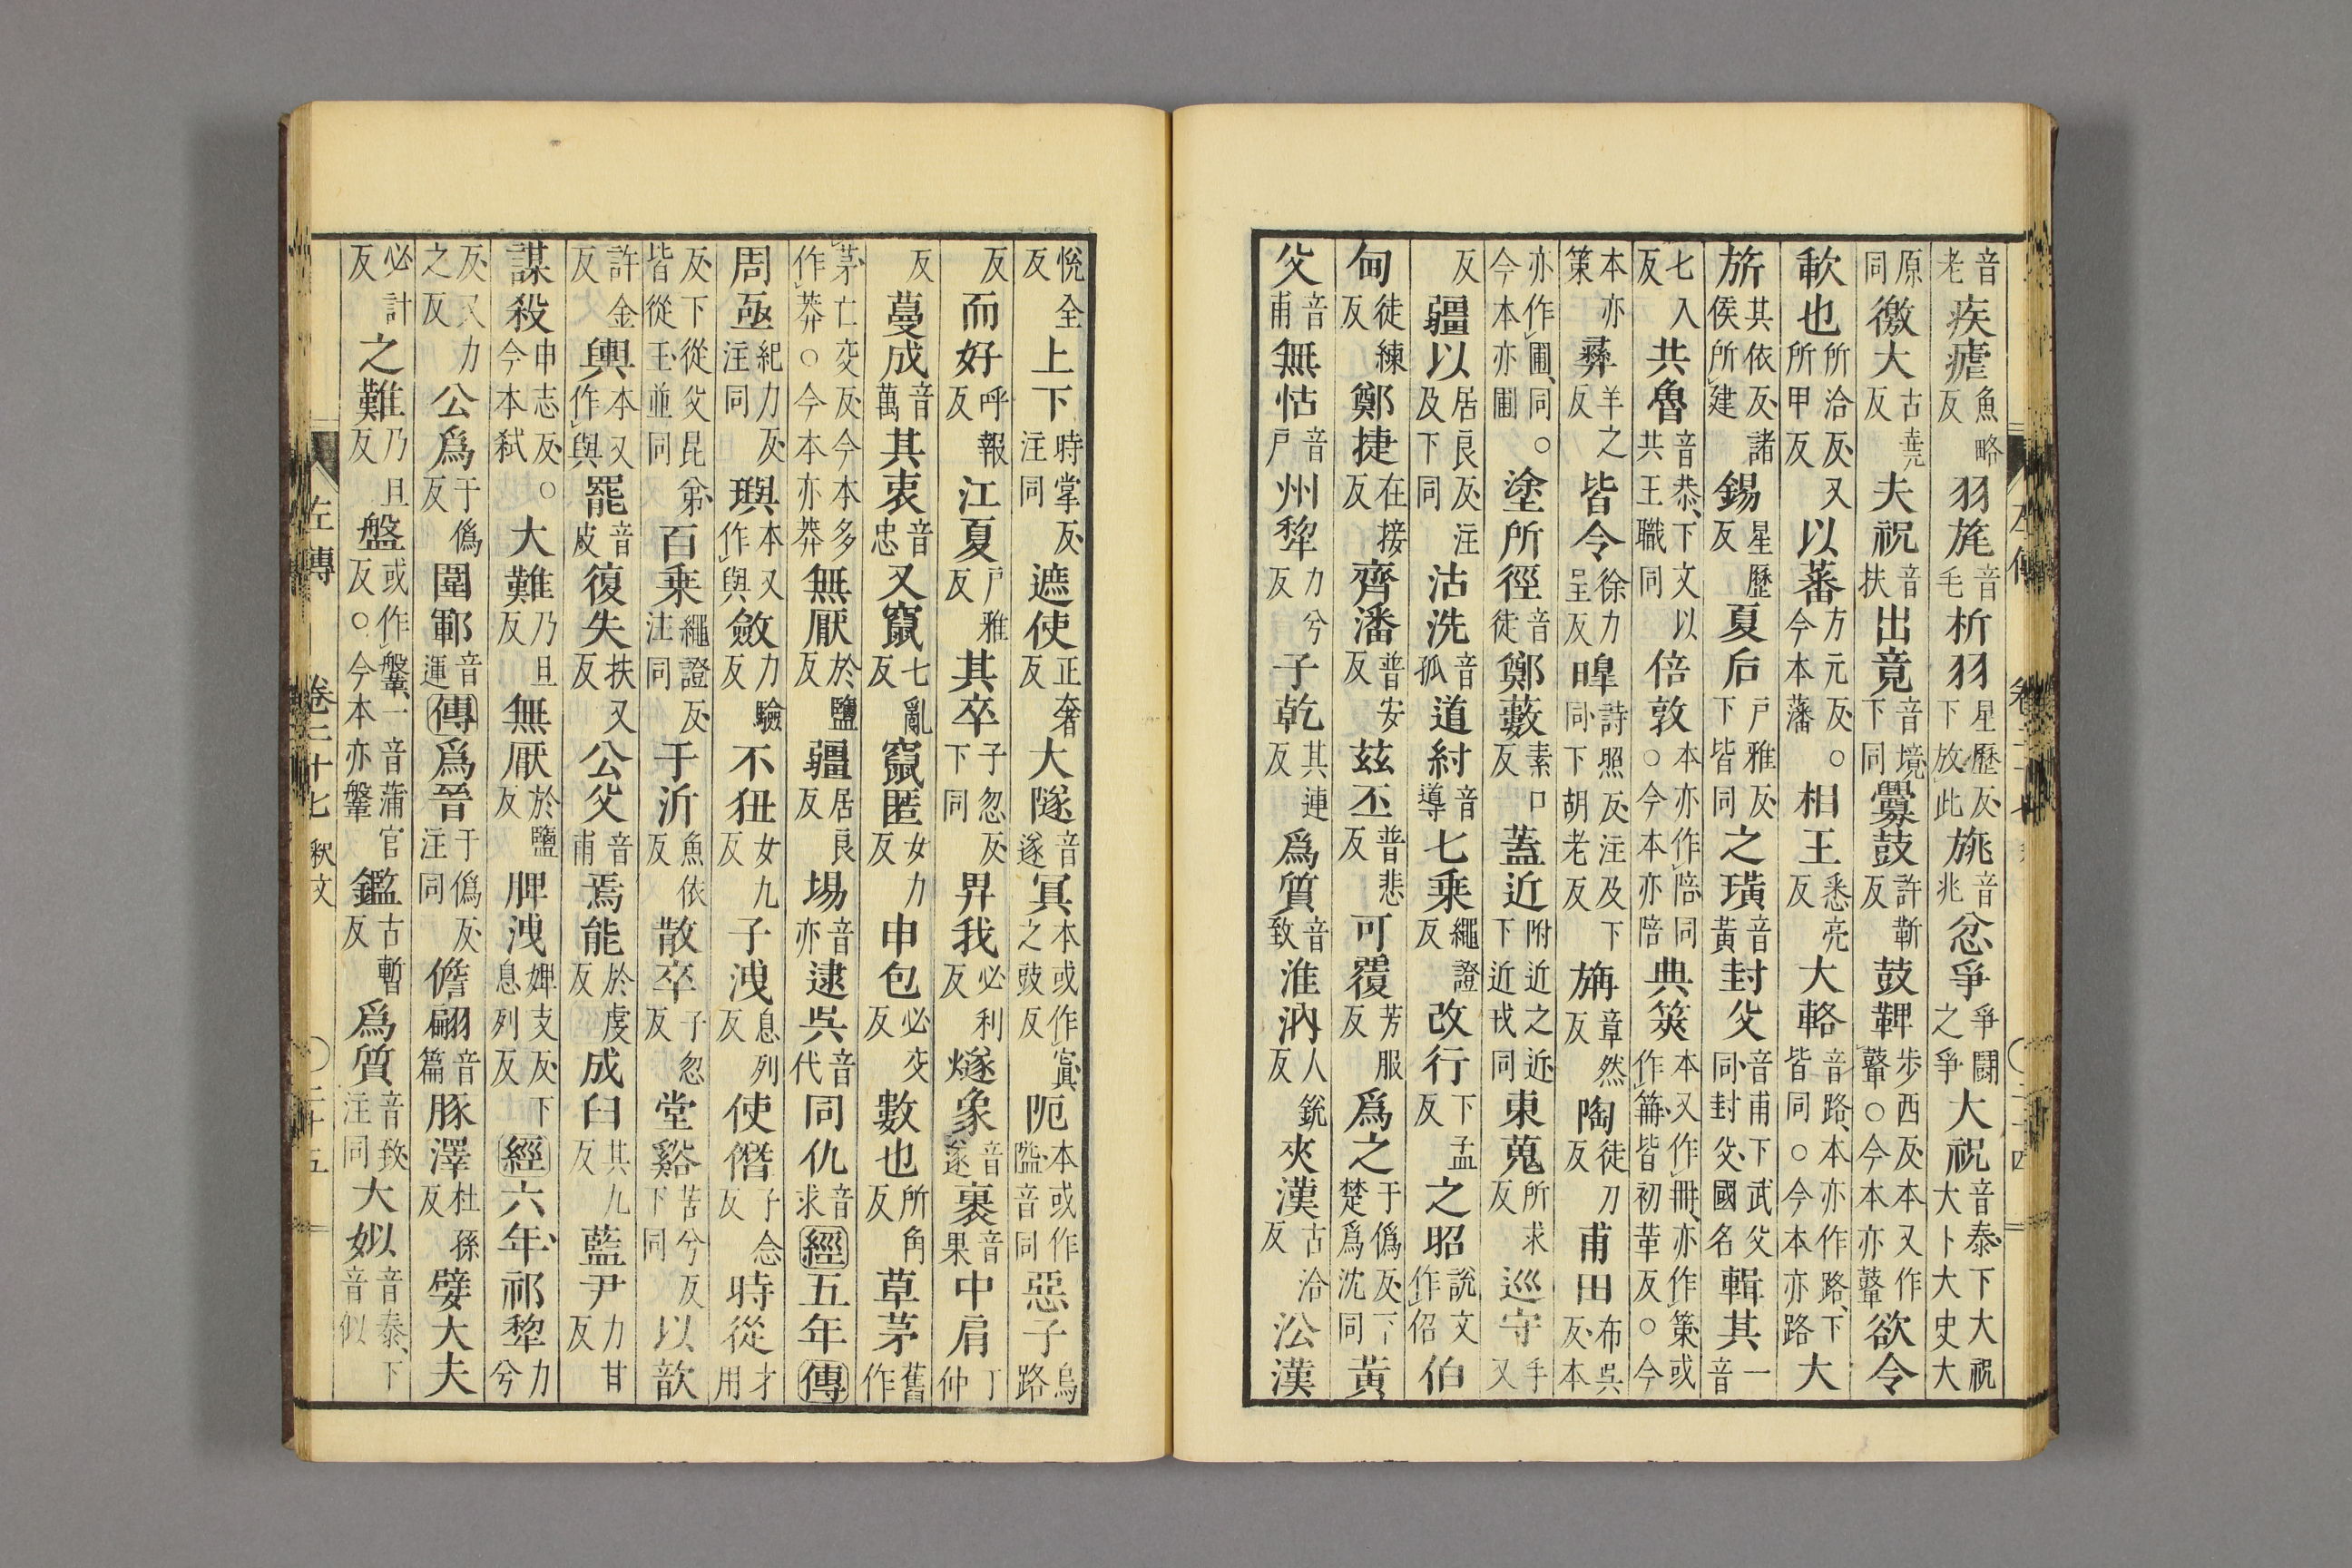 音老疾瘧魚略反羽旄音毛析羽星歷反下放此旐音兆忿爭爭鬬之爭大祝音泰下大祝大卜大史大
原同徼大古堯反夫祝音扶出竟音境下同釁鼓許靳反鼓鞞步西反本又作鼙○今本亦鼙欲令
軟也所洽反又所甲反以蕃方元反○今本藩相王悉亮反大輅音路本亦作路下皆同○今本亦路大
旂其依反諸侯所建錫星歷反夏后戶雅反下皆同之璜音黃封父音甫下武父同封父國名輯其一音
七入反共魯音恭下文以共王職同倍敦本亦作陪同○今本亦陪典筴本又作冊亦作策或作篇皆初革反○今
本亦策彝羊之反皆令徐力呈反皞詩照反注及下同下胡老反旃章然反陶徒刀反甫田布吳反本
亦作圃同○今本亦圃塗所徑音徒鄭藪素口反蓋近附近之近下近戎同東蒐所求反巡守手又
反疆以居良反注及下同沽洗音孤道紂音導七乘繩證反改行下孟反之昭說文作佋伯
甸徒練反鄭捷在接反齊潘普安反茲丕普悲反可覆芳服反爲之于僞反下楚爲沈同黃
父音甫無怙音戶州犂力兮反子乾其連反爲質音致淮汭人銳反夾漢古洽反㳂漢
左傳 卷二十七
悅全反上下時掌反注同遮使正奢反大隧音遂冥本或作寘之豉反阨本或作隘音同惡子烏路
反而好呼報反江夏戶雅反其卒子忽反下同畀我必利反燧象音遂裹音果中肩丁仲
反蔓成音萬其衷音忠又竄七亂反竄匿女力反申包必交反數也所角反草茅舊作
茅亡交反今本多作莽○今本亦莽無厭於鹽反疆居良反場音亦逮吳音代同仇音求經五年傳
周亟紀力反注同璵本又作與斂力驗反不狃女九反子洩息列反使僭子念反時從才用
反下從父昆弟皆從王並同百乘繩證反注同于沂魚依反散卒子忽反堂谿苦兮反下同以歆
許金反輿本又作與罷音皮復失扶又反公父音甫焉能於虔反成臼其九反藍尹力甘反
謀殺申志反○今本弑大難乃旦反無厭於鹽反脾洩婢支反下息列反經六年祁犂力兮
反又力之反公爲于僞反圍鄆音運傳爲晉于僞反注同儋翩音篇豚澤杜孫反嬖大夫
必計反之難乃旦反盤或作鞶一音蒲官反○今本亦鞶鑑古暫反爲質音致注同大姒音泰下音似
左傳 卷二十七 釈文 ○二十五